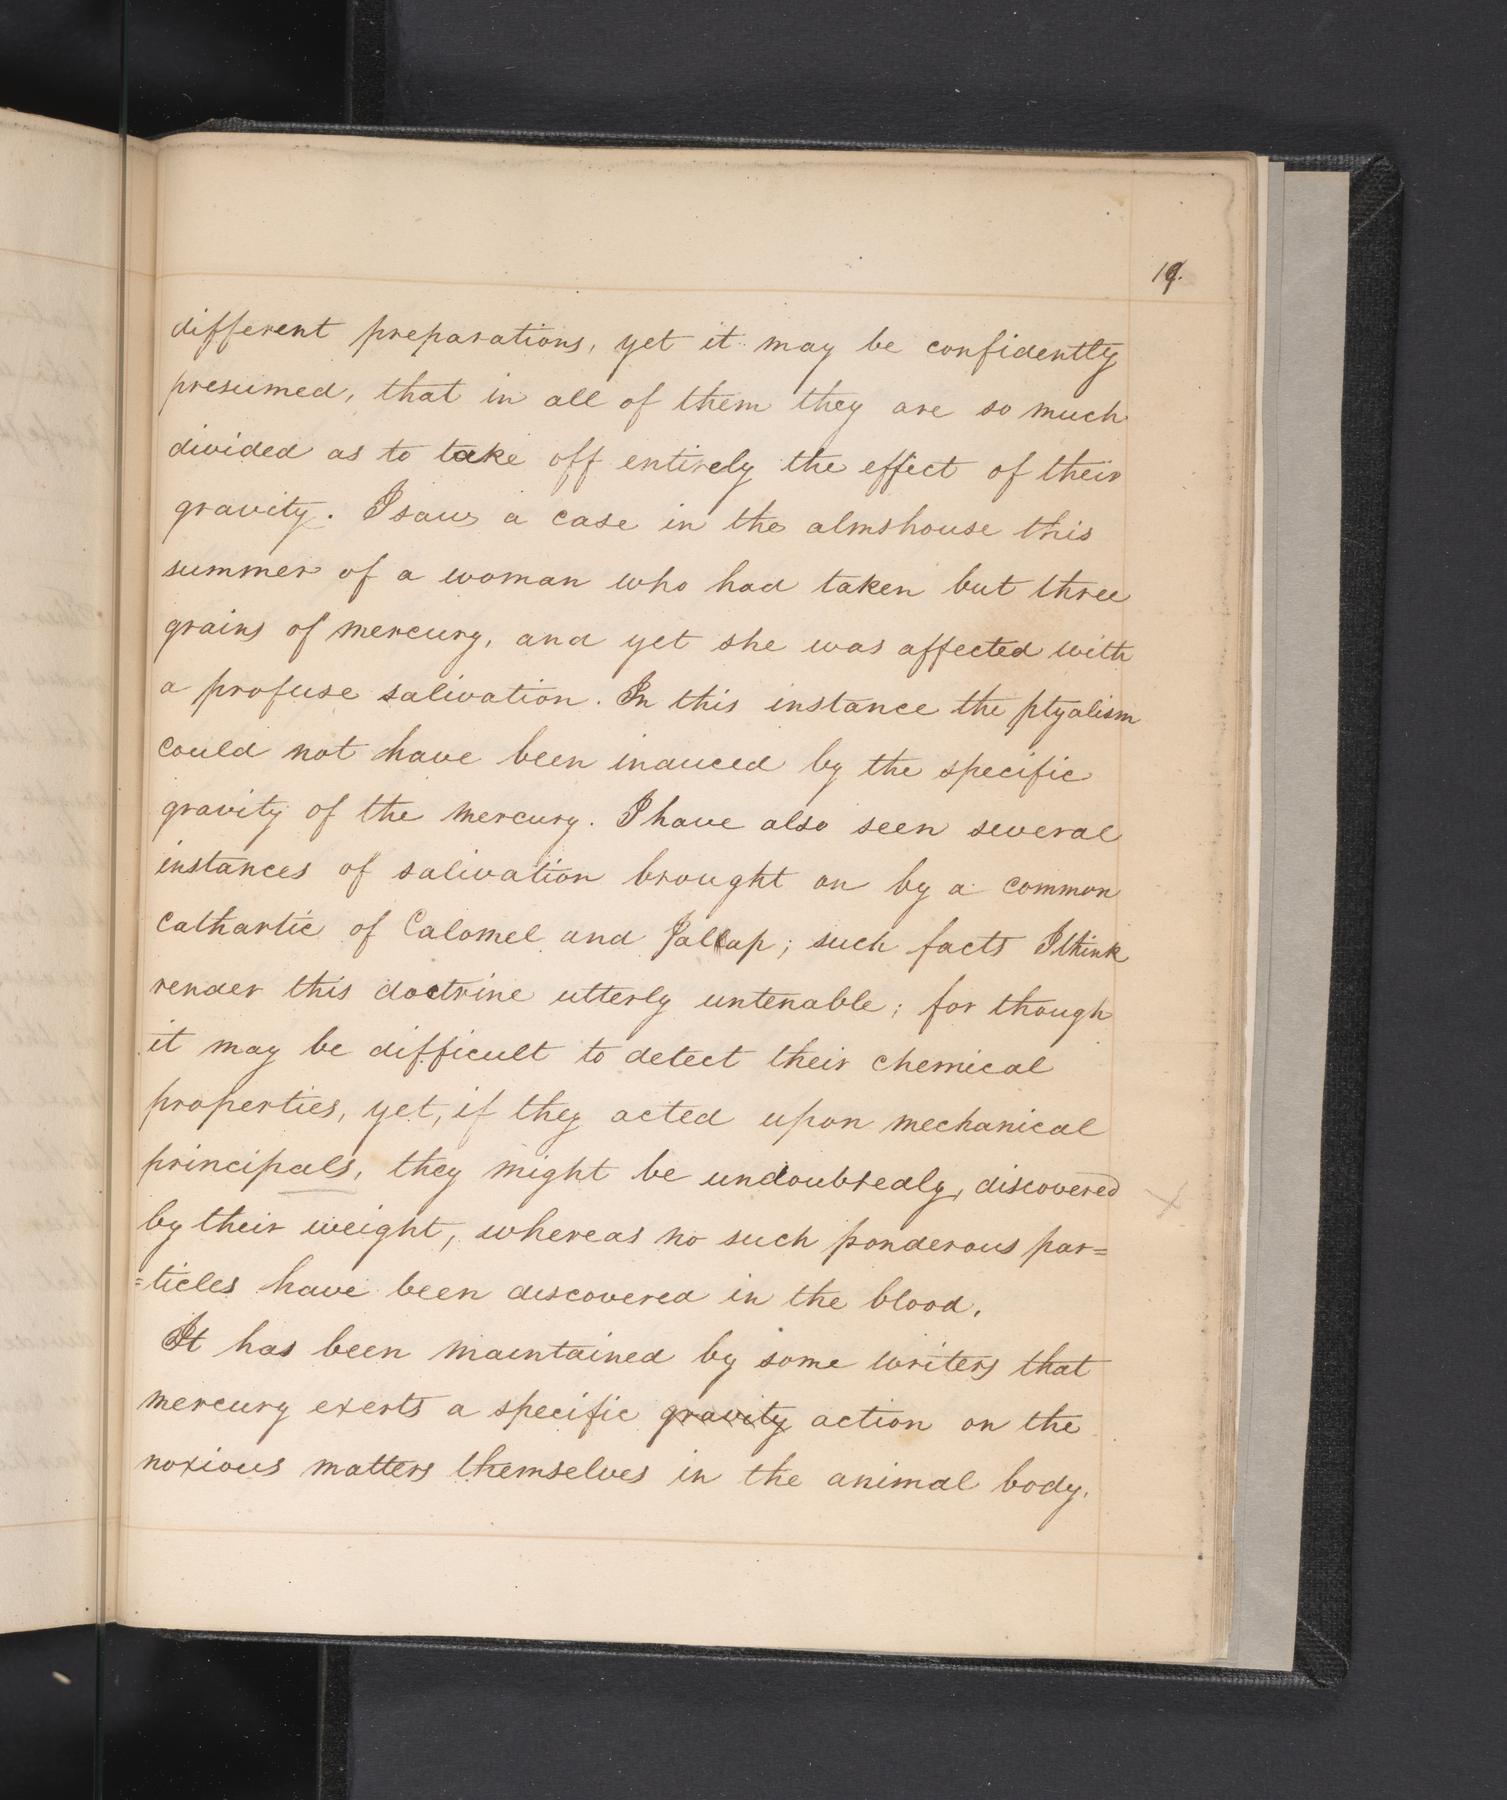 19.
different preparations, yet it may be confidently
presumed, that in all of them they are so much
divided as to take off entirely the effect of their
gravity. I saw a case in the almshouse this
summer of a woman who had taken but three
grains of mercury, and yet she was affected with
a profuse salivation. In this instance the ptyalism
could not have been induced by the specific
gravity of the mercury. I have also seen several
instances of salivation brought on by a common
cathartic of Calomel and Jallap; such facts I think
render this doctrine utterly untenable; for though
it may be difficult to detect their chemical
properties, yet, if they acted upon mechanical
principals, they might be undoubtedly, discovered
by their weight, whereas no such ponderous par=
=ticles have been discovered in the blood.
It has been maintained by some writers that
mercury exerts a specific gravity action on the
noxious matters themselves in the animal body.